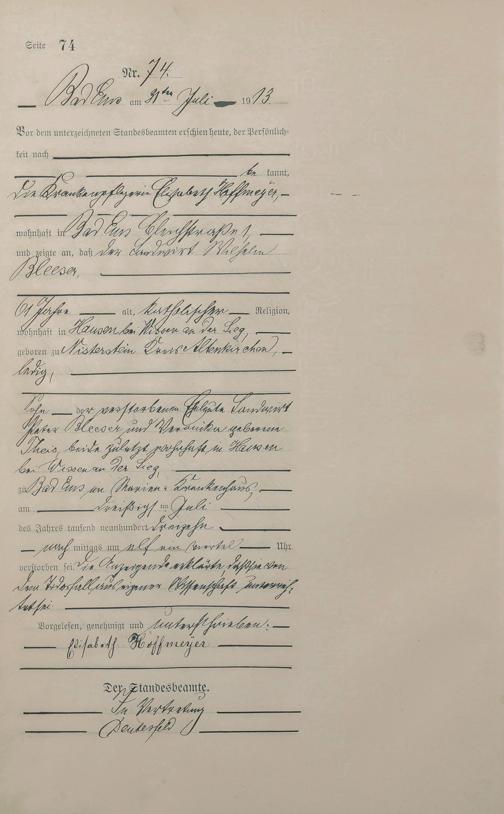 Seite 74
Nr. 74.
Bad Ems am 31ten Juli 1913.
Vor dem unterzeichneten Standesbeamten erschien heute, der Persönlich-
keit nach
be kannt,
die Krankenpflegerin Elisabeth Hoffmeyer,
wohnhaft in Bad Ems Bleichstraße 1,
und zeigte an, daß der Landwirt Wilhelm
Bleeser,
61 Jahre alt, katholischer Religion,
wohnhaft in Hausen bei Wissen an der Sieg,
geboren zu Nisterstein Kreis Altenkirchen,
ledig,
Sohn der verstorbenen Eheleute Landwirt
Peter Bleeser und Veronika geborene
Theis, beide zuletzt wohnhaft in Hausen
bei Wissen an der Sieg,
zu Bad Ems, im Marien-Krankenhaus,
am dreißigsten Juli
des Jahres tausend neunhundert dreizehn
nach mittags um elf ein viertel Uhr
verstorben sei. Die Anzeigende erklärte, daß sie von
dem Todesfall aus eigener Wissenschaft unterrich-
tet sei
Vorgelesen, genehmigt und unterschrieben:
Elisabeth Hoffmeyer
Der Standesbeamte.
In Vertretung